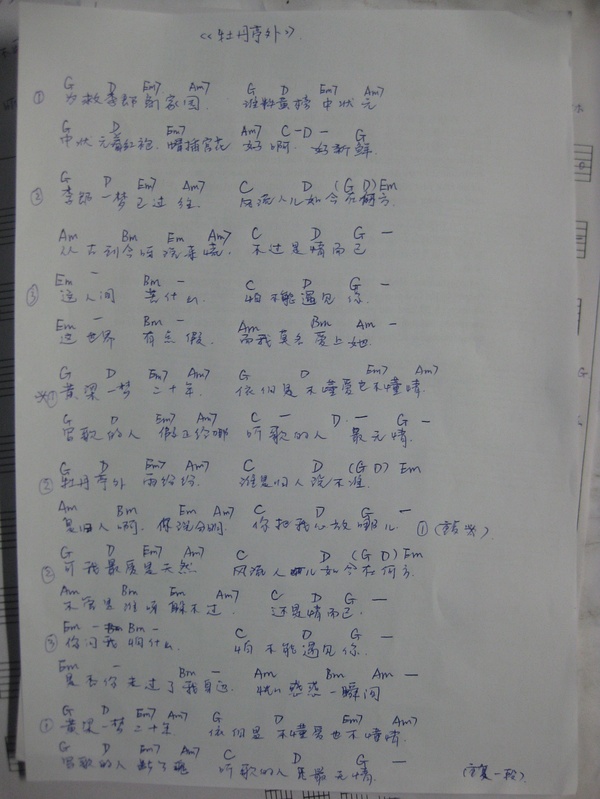 《牡丹亭外》
G D Em7 Am7 G D Em7 Am7
① 为救李郎别家园 谁料黄榜中状元
G D Em7 Am7 C-D - G
中状元着红袍 帽插宫花 好啊 好新鲜
G D Em7 Am7 C D (G D) Em
② 李郎一梦已过往 风流人儿如今在何方
Am Bm Em Am7 C D G -
从古到今 不过是情而已
Em - Bm - C D G -
③ 这人间 苦什么 怕不能遇见你
Em - Bm - Am Bm Am -
这世界 有点假 而我莫名爱上她
G D Em7 Am7 G D Em7 Am7
※① 黄粱一梦二十年 依旧是不懂爱也不懂情
G D Em7 Am7 C - D - G -
写歌的人假正经哪 听歌的人最无情
G D Em7 Am7 C D (G D) Em
② 牡丹亭外雨纷纷 谁是归人说不准
Am Bm Em Am7 C D G -
是归人啊 你说分明 你把我心放哪儿 ①
G D Em7 Am7 C D (G D) Em
② 可我最爱是天然 风流人儿如今在何方
Am Bm Em Am7 C D G -
不管是谁 还是情而已
Em - Bm - C D G -
③ 你问我怕什么 怕不能遇见你
Em - Bm - Am Bm Am -
是否你走过了我身边 恍恍惚惚一瞬间
G D Em7 Am7 G D Em7 Am7
① 黄粱一梦二十年 依旧是不懂爱也不懂情
G D Em7 Am7 C D G -
写歌的人断了魂 听歌的人是最无情